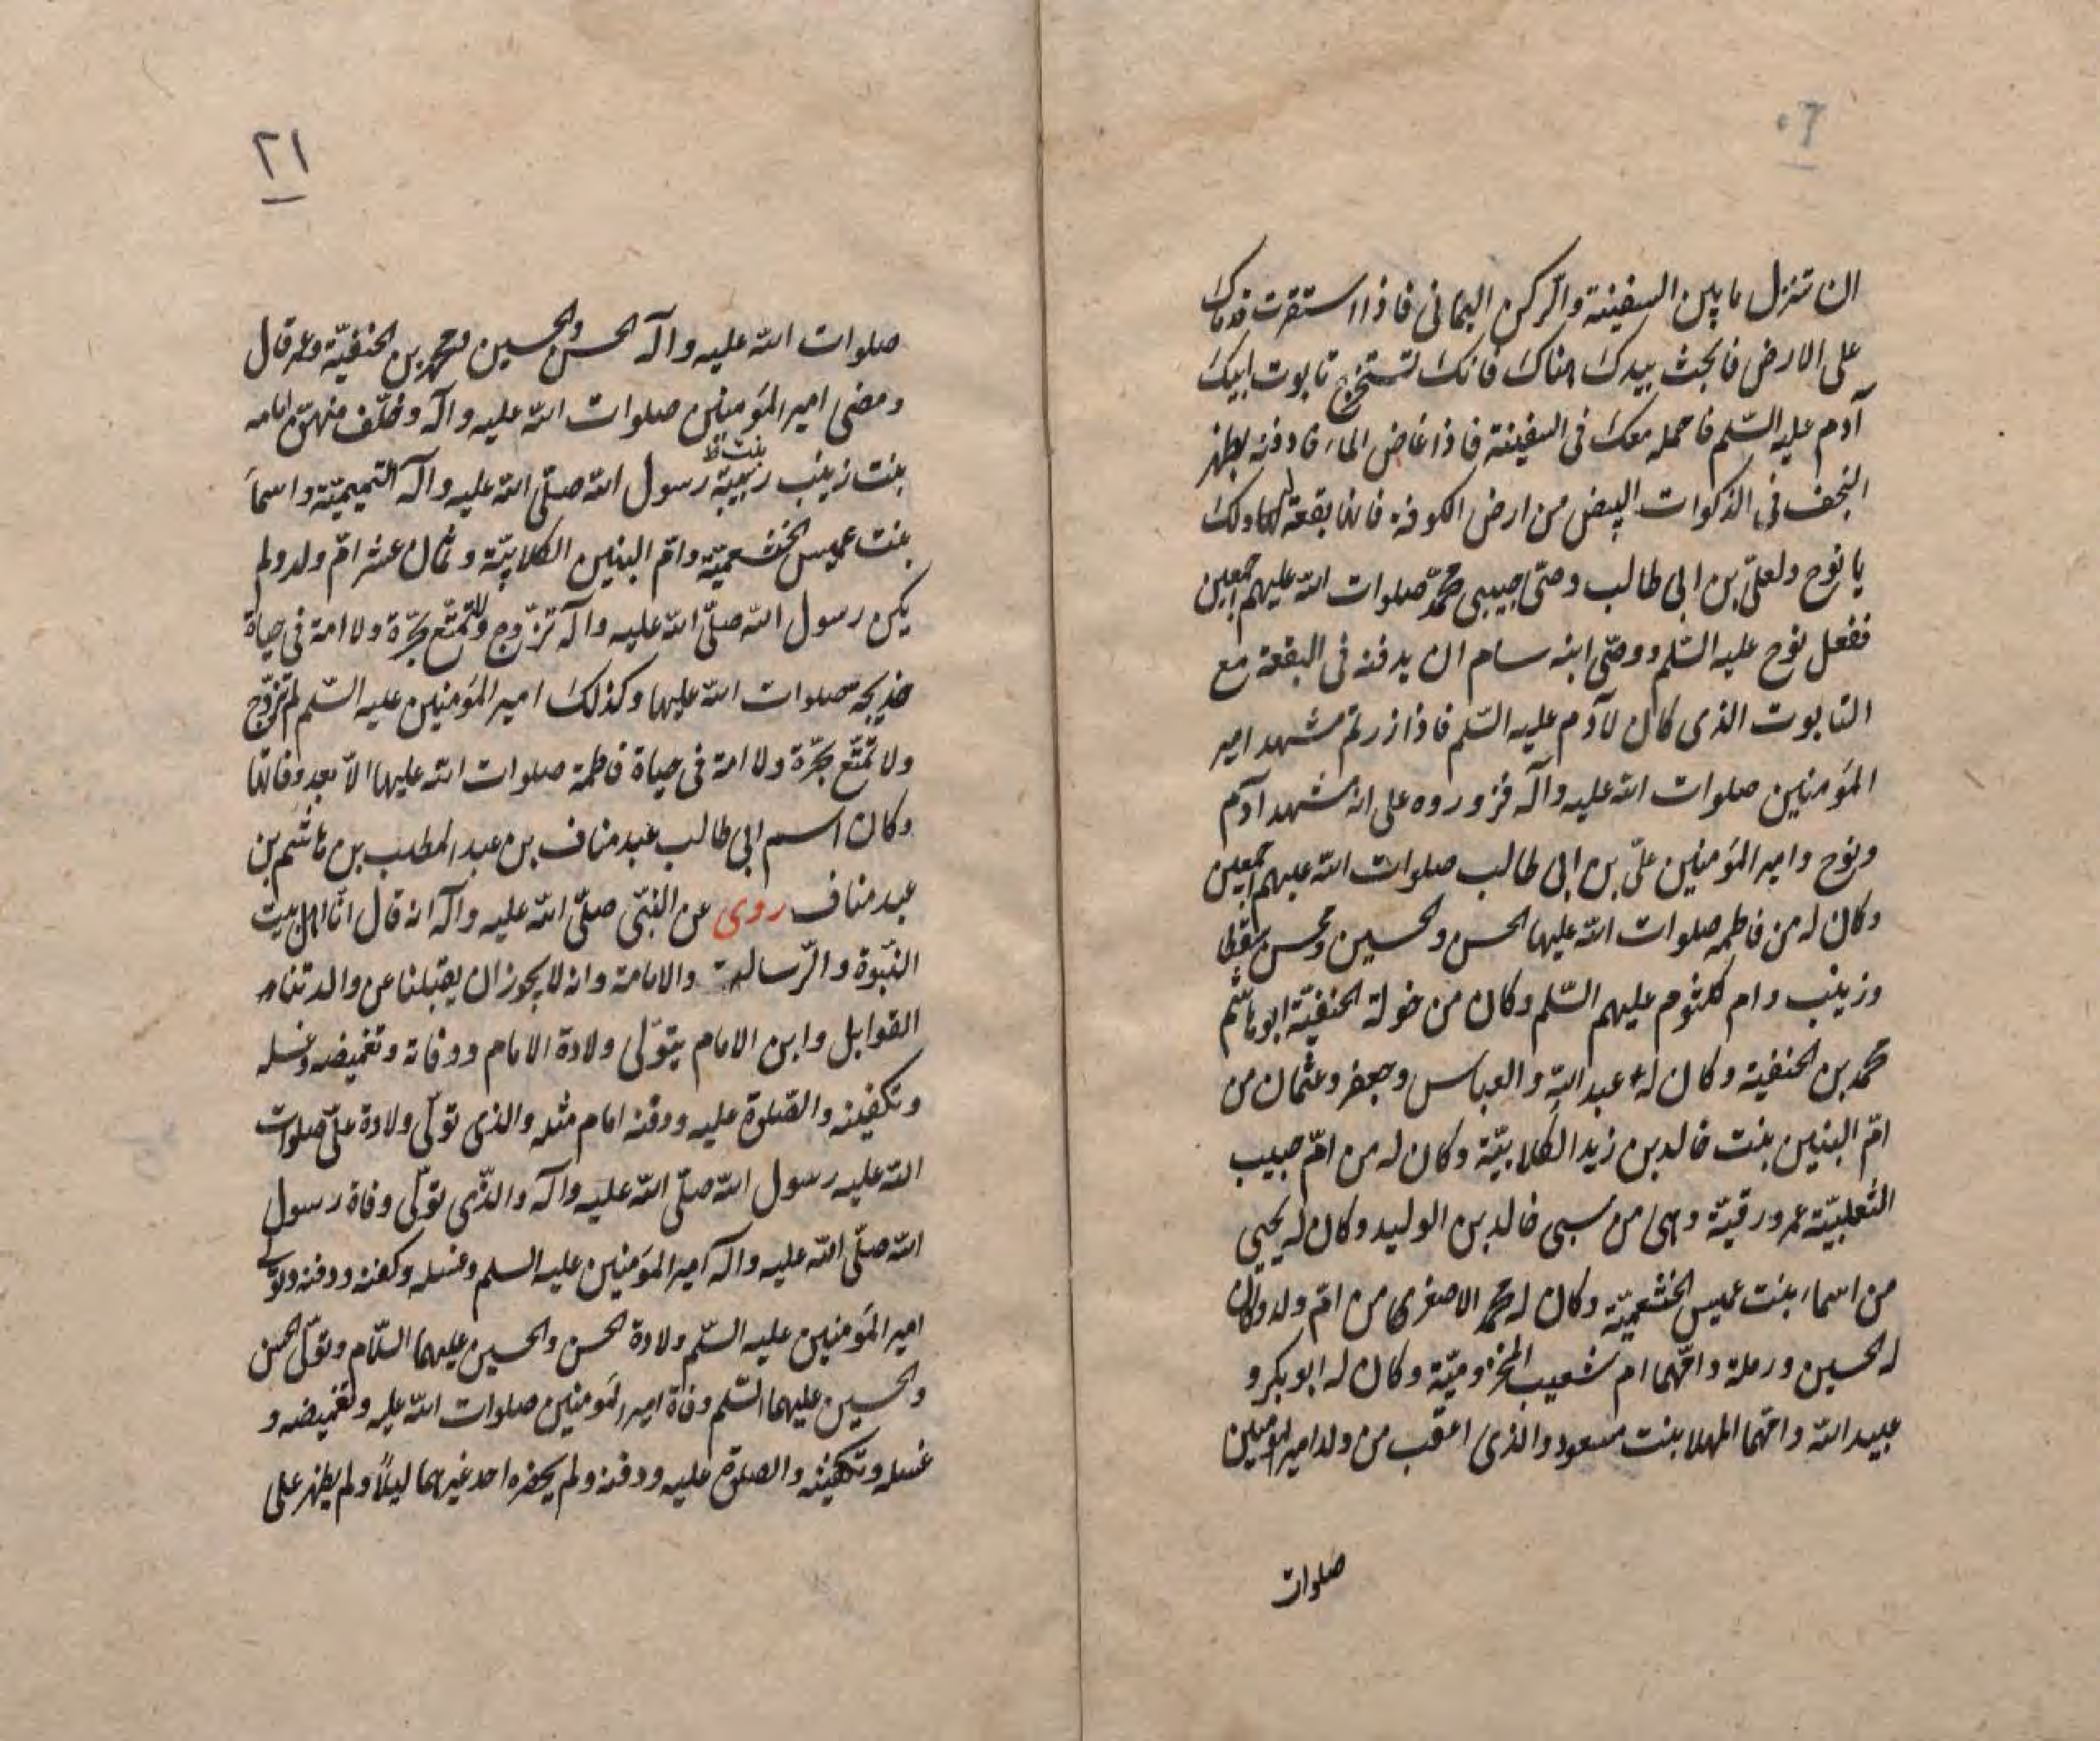 ان تنزل ما بين السفينة والركن اليمانى فاذا استقرت قدماك
على الارض فابحث بيدك هناك فانك تستخرج تابوت ابيك
آدم عليه السّلم فاحمله معك فى السفينة فاذا غاض الماء فادفنه بظهر
النجف فى الذكوات البيض من ارض الكوفة فانها بقعة لك
يا نوح ولعلىّ بن ابى طالب وصىّ حبيبى محمّد صلوات الله عليهم اجمعين
ففعل نوح عليه السّلم ووصّى ابنه سام ان يدفنه فى البقعة مع
التابوت الذى كان لآدم عليه السّلم فاذا زرتم مشهد امير
المؤمنين صلوات الله عليه وآله فزوروه على انه مشهد آدم
ونوح وامير المؤمنين علىّ بن ابى طالب صلوات الله عليهم اجمعين
وكان له من فاطمه صلوات الله عليها الحسن والحسين ومحسن سقط
وزينب وام كلثوم عليهم السّلم وكان من خولة الحنفيّة ابو هاشم
محمد بن الحنفية وكان له عبد الله والعباس وجعفر وعثمان من
امّ البنين بنت خالد بن زيد الكلابيّة وكان له من امّ حبيب
التغلبيّة عمر ورقيّة وهى من سبى خالد بن الوليد وكان له يحيى
من اسماء بنت عميس الخثعميّة وكان له محمد الاصغر من امّ ولد وكان
له الحسين ورملة وامّهما ام شعيب المخزوميّة وكان له ابو بكر و
عبيد الله وامّهما المهلا بنت مسعود والذى اعقب من ولد امير المؤمنين
صلوات
٢١
صلوات الله عليه وآله الحسن والحسين ومحمد بن الحنفيّة وعمر قال
ومضى امير المؤمنين صلوات الله عليه وآله وخلّف منهنّ امامه
بنت زينب ربيبة بنت ظ رسول الله صلّى الله عليه وآله التميميّة واسما
بنت عميس الخثعميّة وامّ البنين الكلابيّة وثمان عشر امّ ولد ولم
يكن رسول الله صلّى الله عليه وآله تزوّج ولا تمتّع بحرّة ولا امة فى حياة
خديجه صلوات الله عليها وكذلك امير المؤمنين عليه السّلم لم تزوّج
ولا تمتّع بحرّة ولا امة فى حياة فاطمة صلوات الله عليها الاّ بعد وفاتها
وكان اسم ابى طالب عبد مناف بن عبد المطلب بن هاشم بن
عبد مناف روى عن النبّى صلّى الله عليه وآله انه قال انّا اهل بيت
النبّوة والرّسالة والامامة وانه لا يجوز ان يقبلنا عن ولادتنا
القوابل وابن الامام يتوّلى ولادة الامام ووفاته وتغميضه وغسله
وتكفينه والصّلوة عليه ودفنه امام مثله والذى تولّى ولادة علىّ صلوات
الله عليه رسول الله صلّى الله عليه وآله والذّى تولّى وفاة رسول
الله صلّى الله عليه وآله امير المؤمنين عليه السلم وغسله وكفنه ودفنه وتولّى
امير المؤمنين عليه السّلم ولادة الحسن والحسين عليهما السّلام وتولّى الحسن
والحسين عليهما السّلم وفاة امير المؤمنين صلوات الله عليه وتغميضه و
غسله وتكفينه والصلوة عليه ودفنه ولم يحضره احد غيرهما ليلاً ولم يظهر على